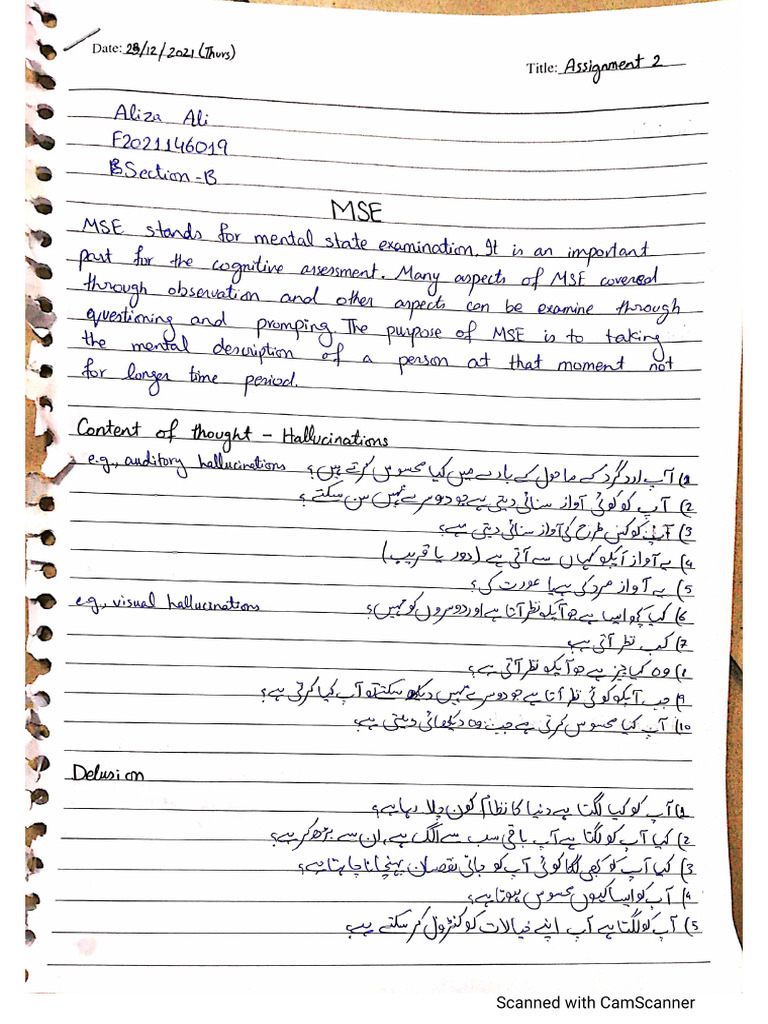 Date: 23/12/2021 (Thurs)
Title: Assignment 2
Aliza Ali
F2021146019
Section-B
MSE
MSE stands for mental state examination. It is an important
part for the cognitive assessment. Many aspects of MSE covered
through observation and other aspects can be examine through
questioning and promping. The purpose of MSE is to taking
the mental description of a person at that moment not
for longer time period.
Content of thought - Hallucinations
e.g., auditory hallucinations 1) آپ اردگرد کے ماحول کے بارے میں کیا محسوس کرتے ہیں؟
2) آپ کو کوئی آواز سنائی دیتی ہے جو دوسرے نہیں سن سکتے؟
3) آپ کو کس طرح کی آواز سنائی دیتی ہے؟
4) یہ آواز آپکو کہاں سے آتی ہے (دور یا قریب)
5) یہ آواز مرد کی ہے یا عورت کی؟
e.g., visual hallucinations 6) کیا کچھ ایسا ہے جو آپکو نظر آتا ہے اور دوسروں کو نہیں؟
7) کب نظر آتی ہے
8) وہ کیا چیز ہے جو آپکو نظر آتی ہے؟
9) جب آپکو کوئی نظر آتا ہے جو دوسرے نہیں دیکھ سکتے تو آپ کیا کرتی ہے؟
10) آپ کیا محسوس کرتی ہے جب وہ دیکھائی دیتی ہے
Delusion
1) آپ کو کیا لگتا ہے دنیا کا نظام کون چلا رہا ہے؟
2) کیا آپ کو لگتا ہے آپ باقی سب سے الگ ہے، ان سے بڑھ کر ہے؟
3) کیا آپ کو کبھی لگا کوئی آپ کو جانی نقصان پہنچانا چاہتا ہے؟
4) آپ کو ایسا کیوں محسوس ہوتا ہے؟
5) آپ کو لگتا ہے آپ اپنے خیالات کو کنٹرول کر سکتے ہے
Scanned with CamScanner